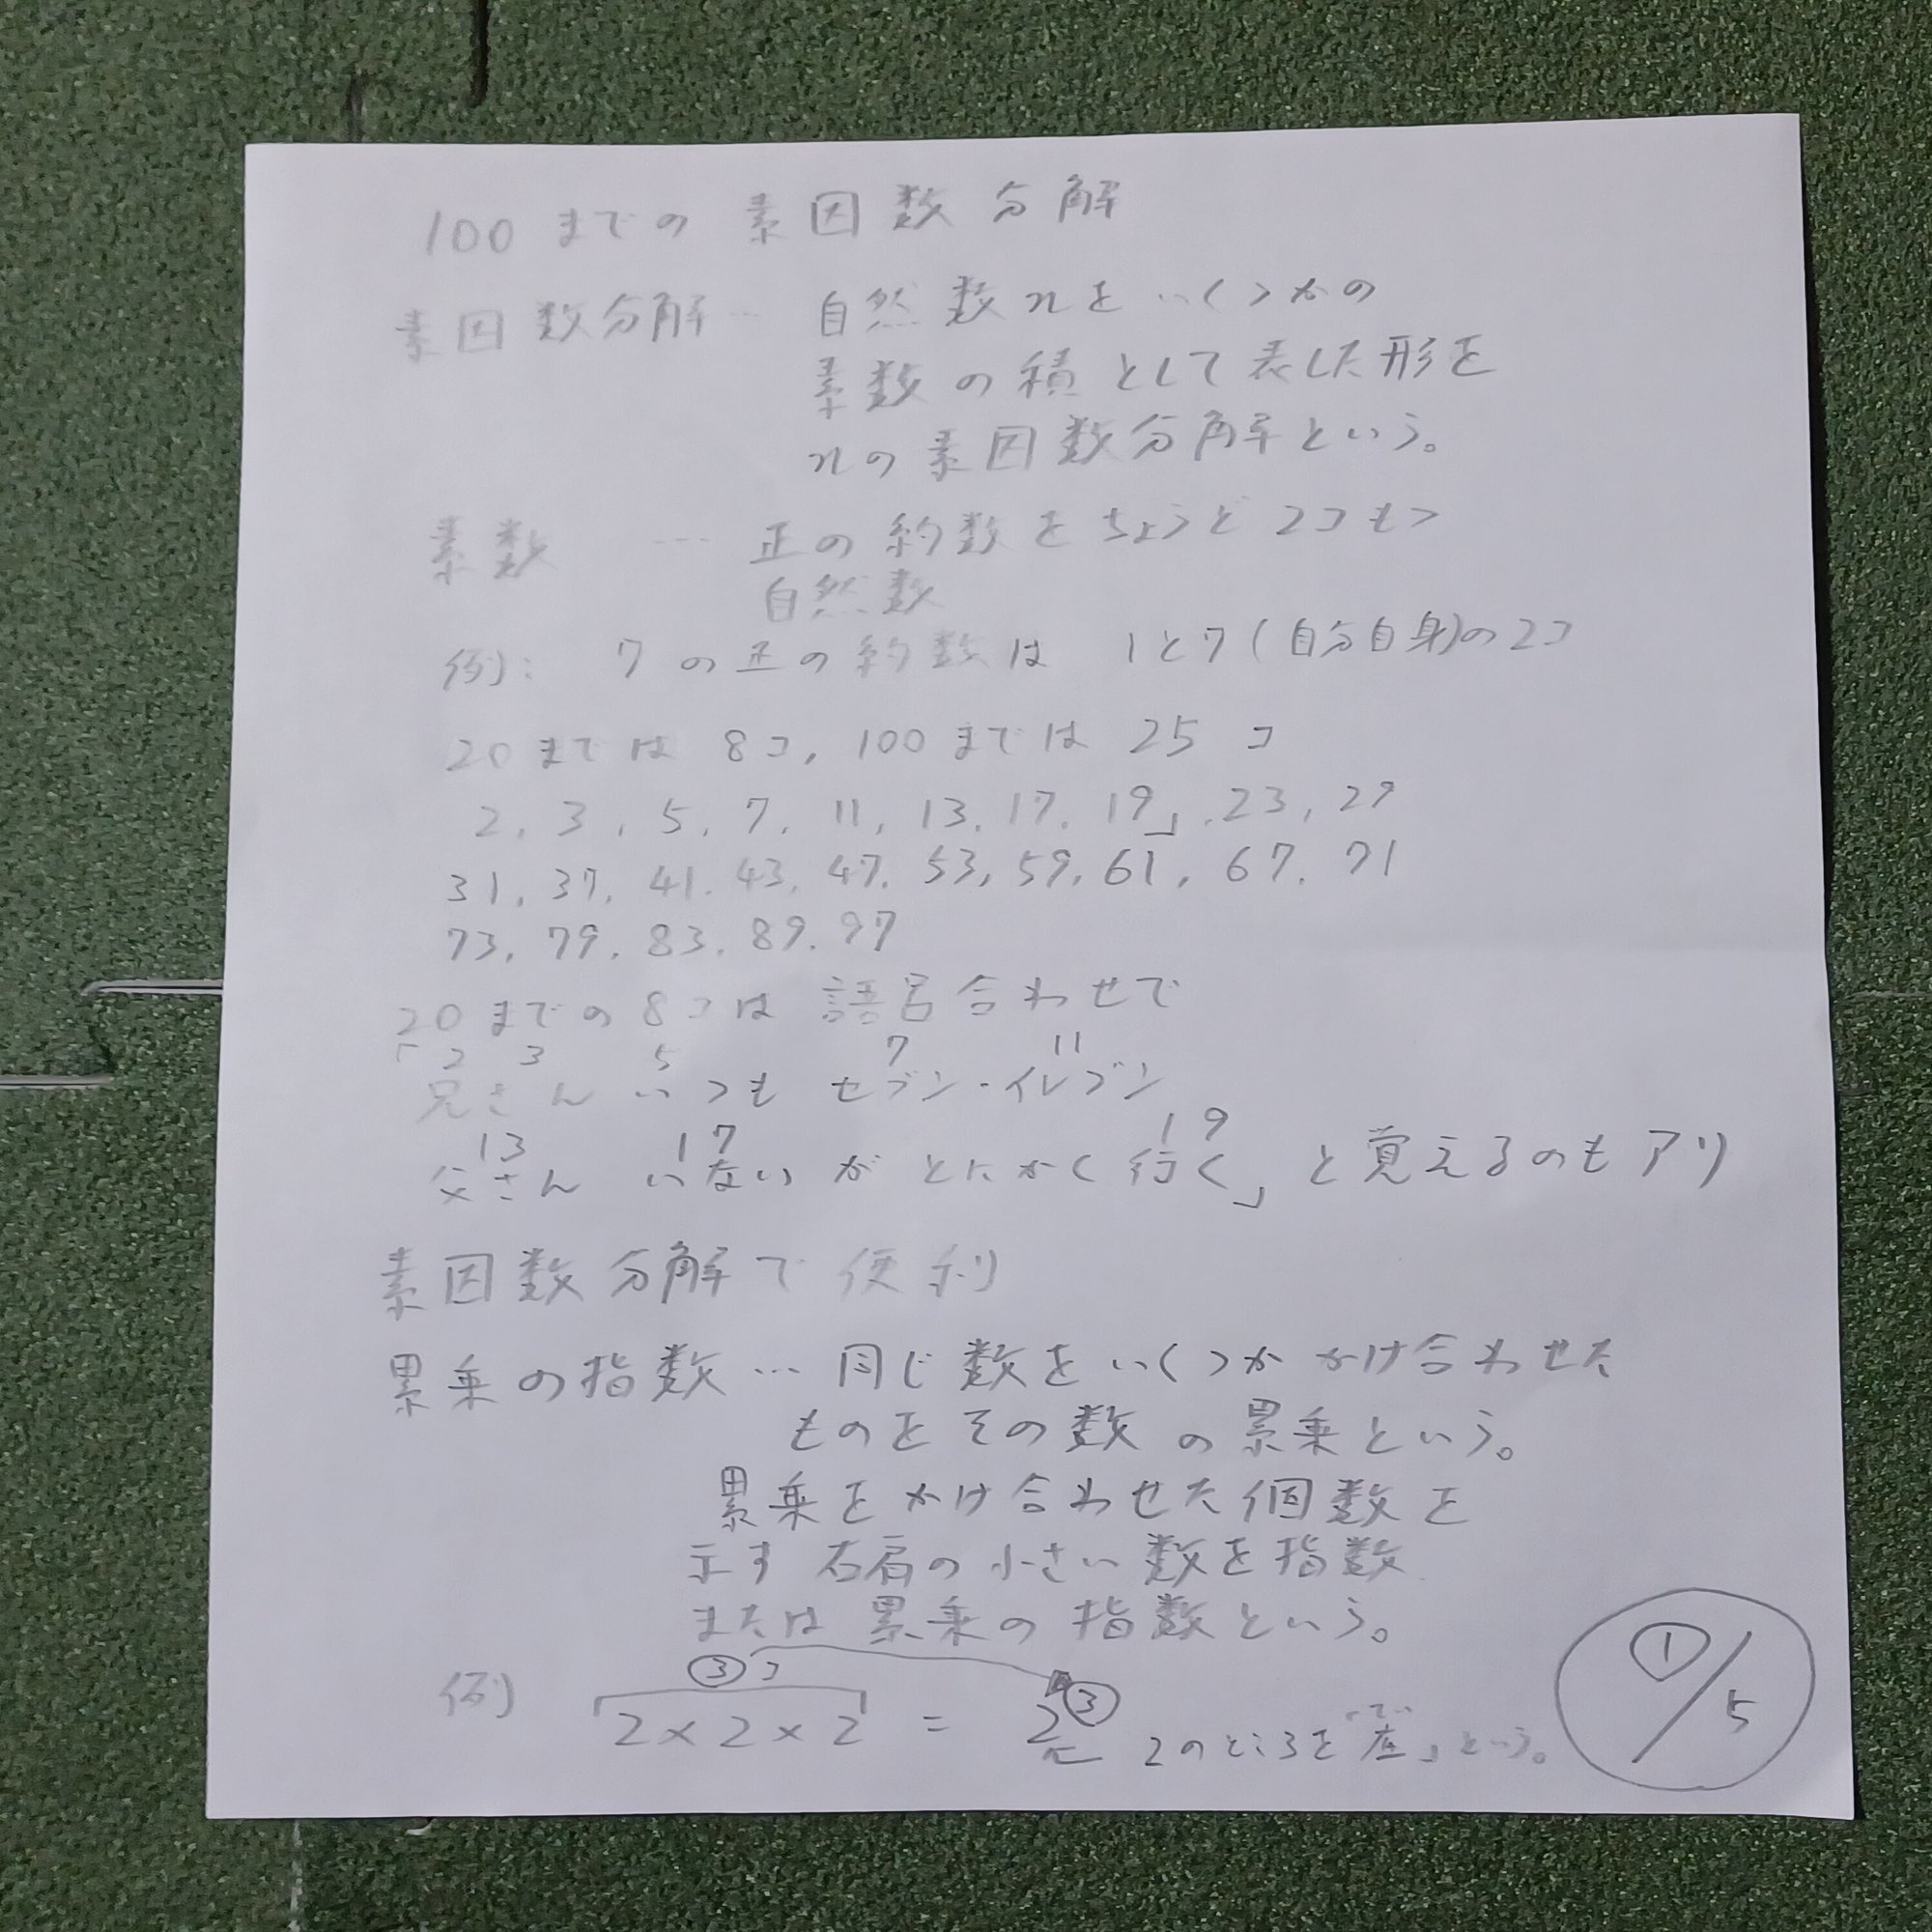 100までの素因数分解
素因数分解… 自然数nをいくつかの
素数の積として表した形を
nの素因数分解という。
素数 … 正の約数をちょうど2コもつ
自然数
例): 7の正の約数は 1と7(自分自身)の2コ
20までは 8コ, 100までは 25コ
2, 3, 5, 7, 11, 13, 17, 19」, 23, 29
31, 37, 41, 43, 47, 53, 59, 61, 67, 71
73, 79, 83, 89, 97
20までの8コは語呂合わせで
「2 3 5 7 11
兄さん いつも セブン・イレブン
13 17 19
父さん いないが とにかく行く」と覚えるのもアリ
素因数分解で便利
累乗の指数… 同じ数をいくつかかけ合わせた
ものをその数の累乗という。
累乗をかけ合わせた個数を
示す右肩の小さい数を指数
または累乗の指数という。
③コ
例) 2×2×2 = 2③
2のところを「底」という。
てい
①/5